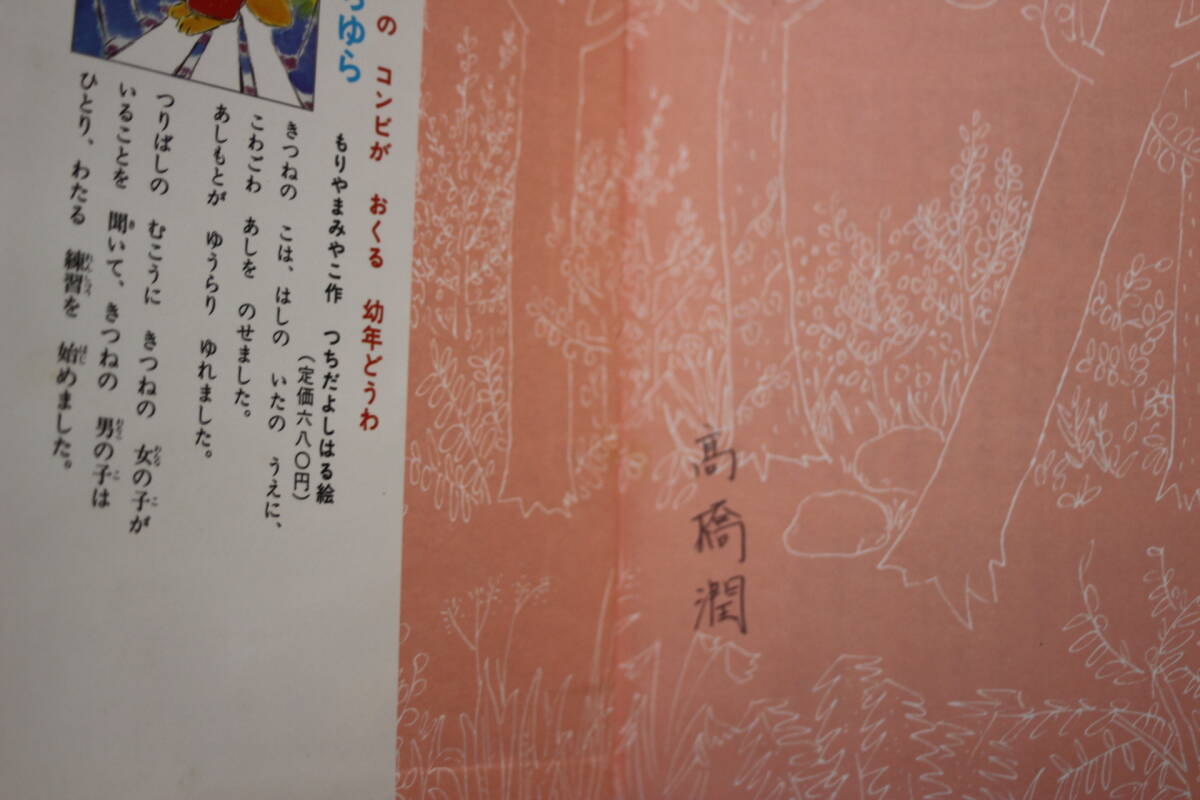 高橋潤
の コンビが おくる 幼年どうわ
ゆら
もりやまみやこ作 つちだよしはる絵
(定価六八〇円)
きつねの こは、はしの いたの うえに、
こわごわ あしを のせました。
あしもとが ゆうらり ゆれました。
つりばしの むこうに きつねの 女の子が
いることを 聞いて、きつねの 男の子は
ひとり、わたる 練習を 始めました。